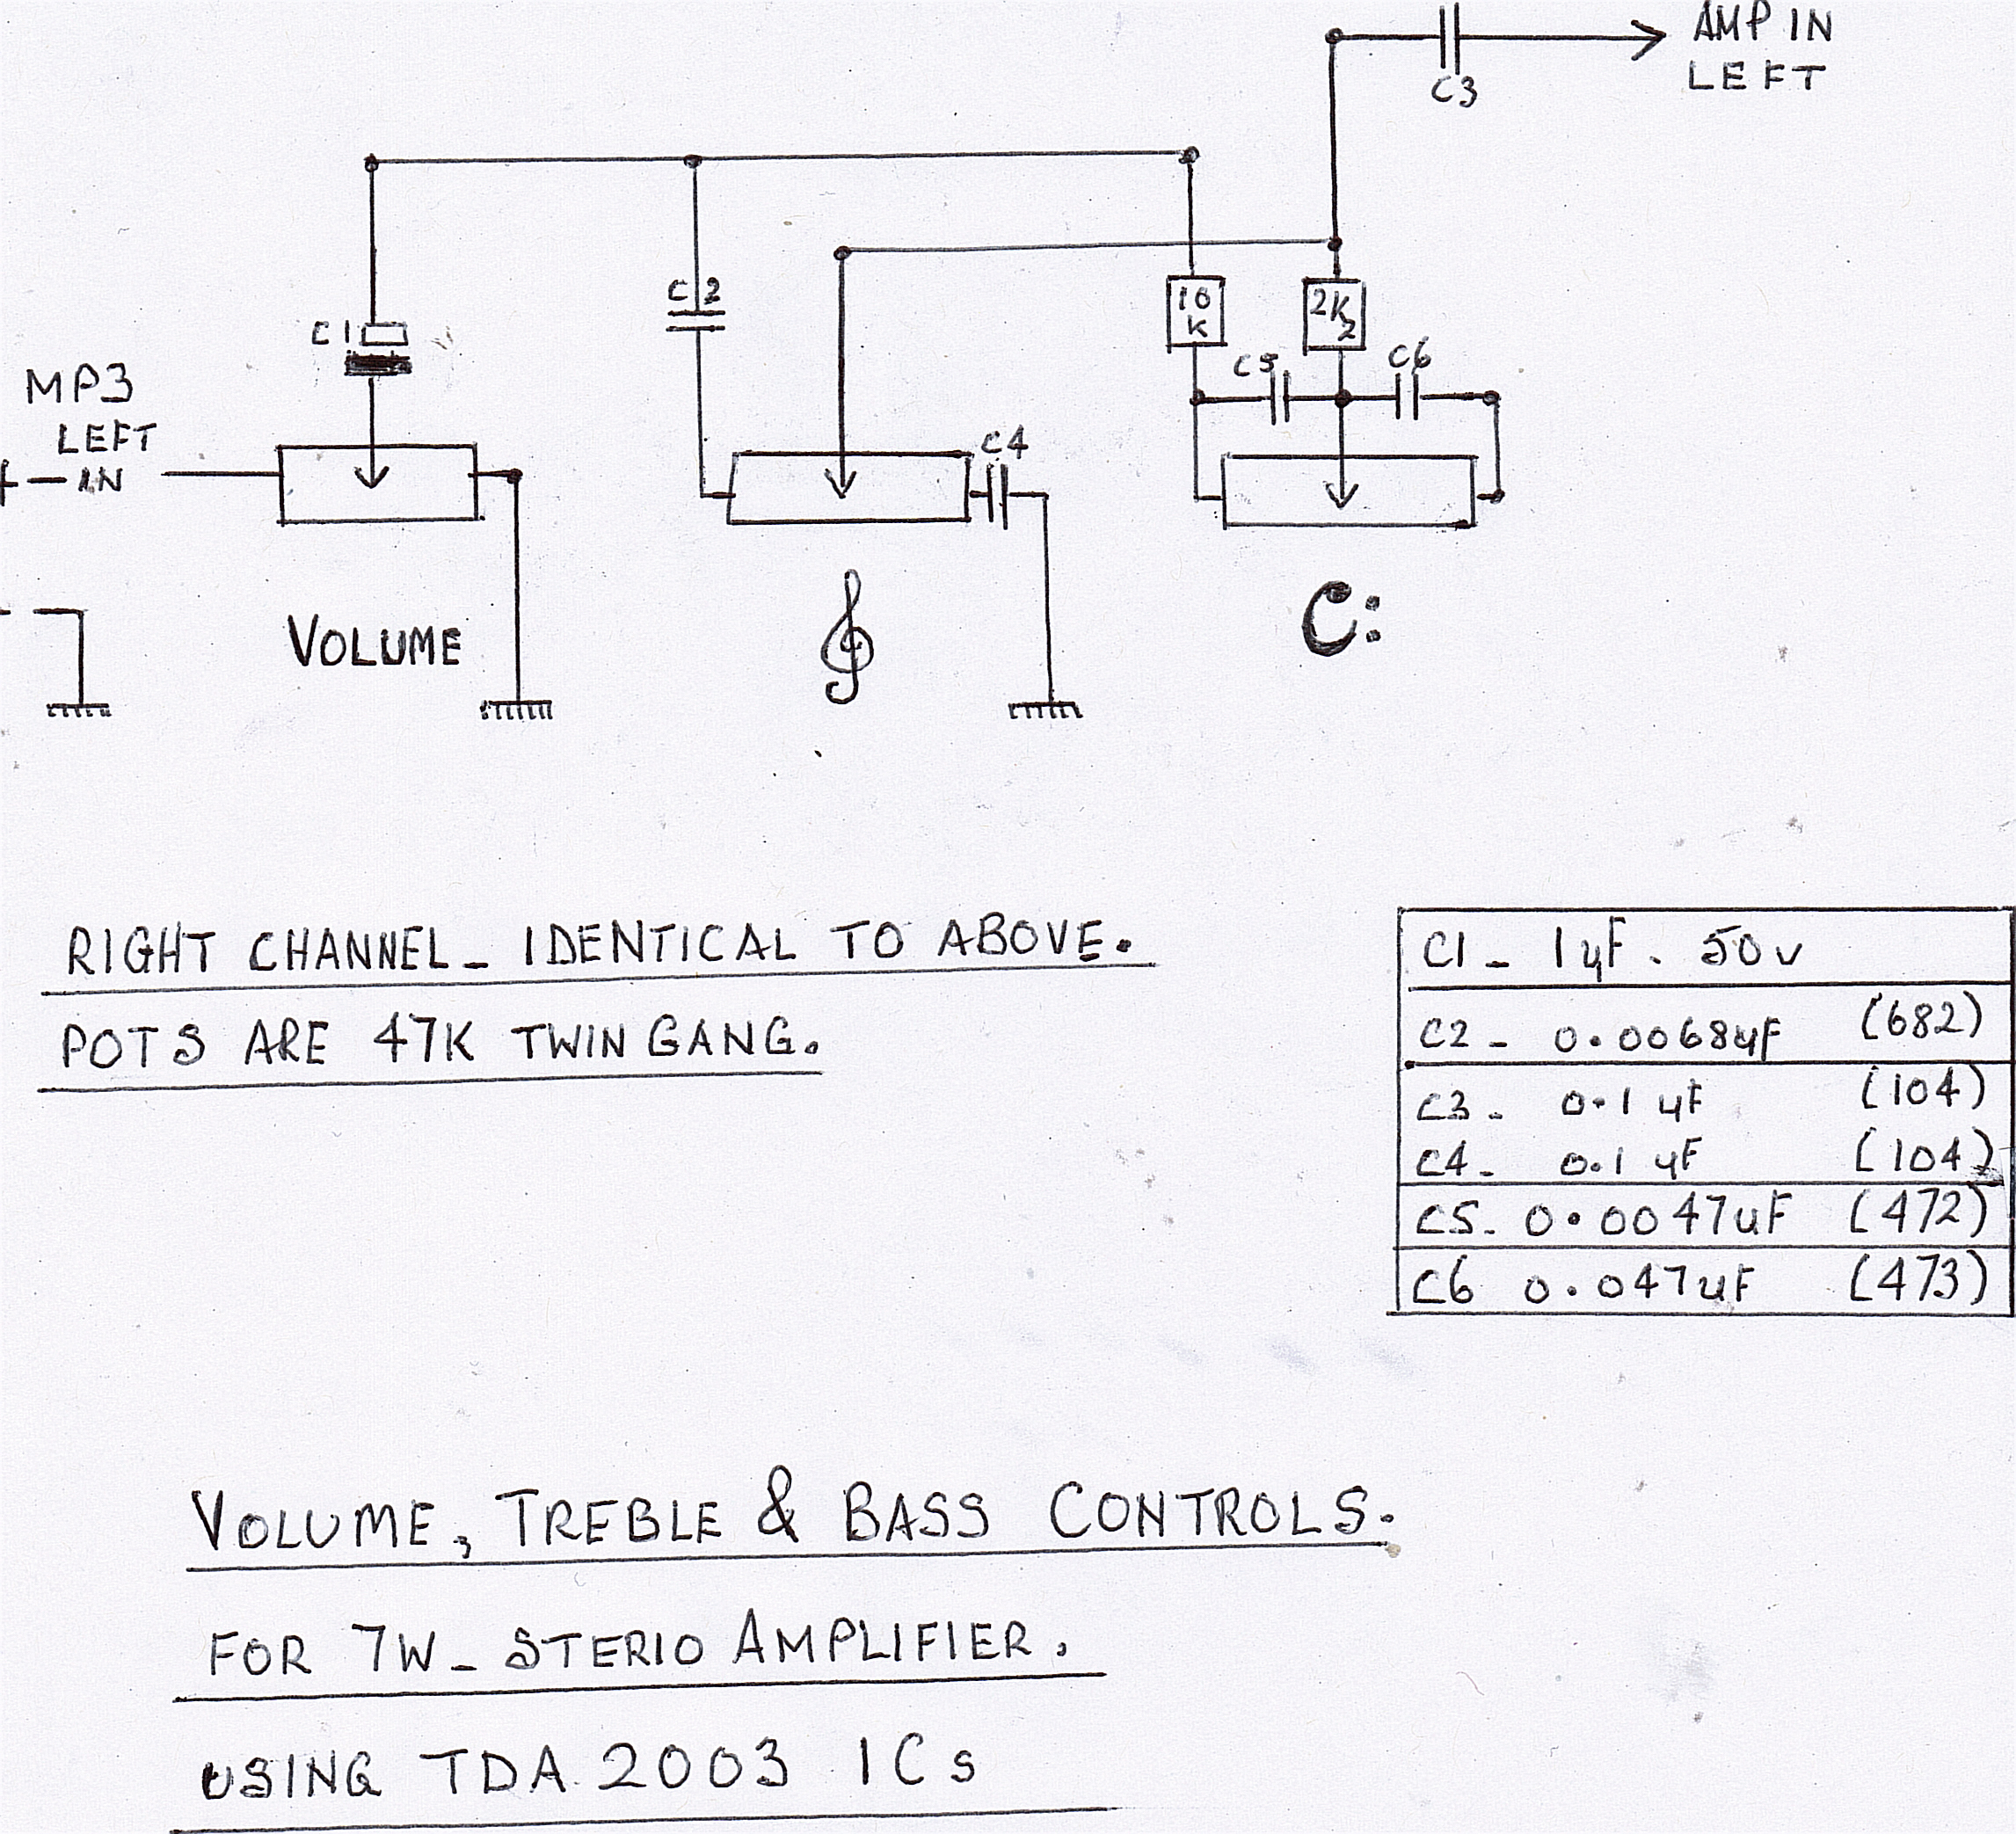 AMP IN
LEFT
C3
C2
C1
10
K
2K
2
C5
C6
MP3
LEFT
IN
C4
VOLUME
RIGHT CHANNEL - IDENTICAL TO ABOVE.
POTS ARE 47K TWIN GANG.
C1 - 1uF. 50v
C2 - 0.0068uF (682)
C3 - 0.1 uF (104)
C4 - 0.1 uF (104)
C5 - 0.0047uF (472)
C6 0.047uF (473)
VOLUME, TREBLE & BASS CONTROLS.
FOR 7W - STERIO AMPLIFIER.
USING TDA 2003 ICs